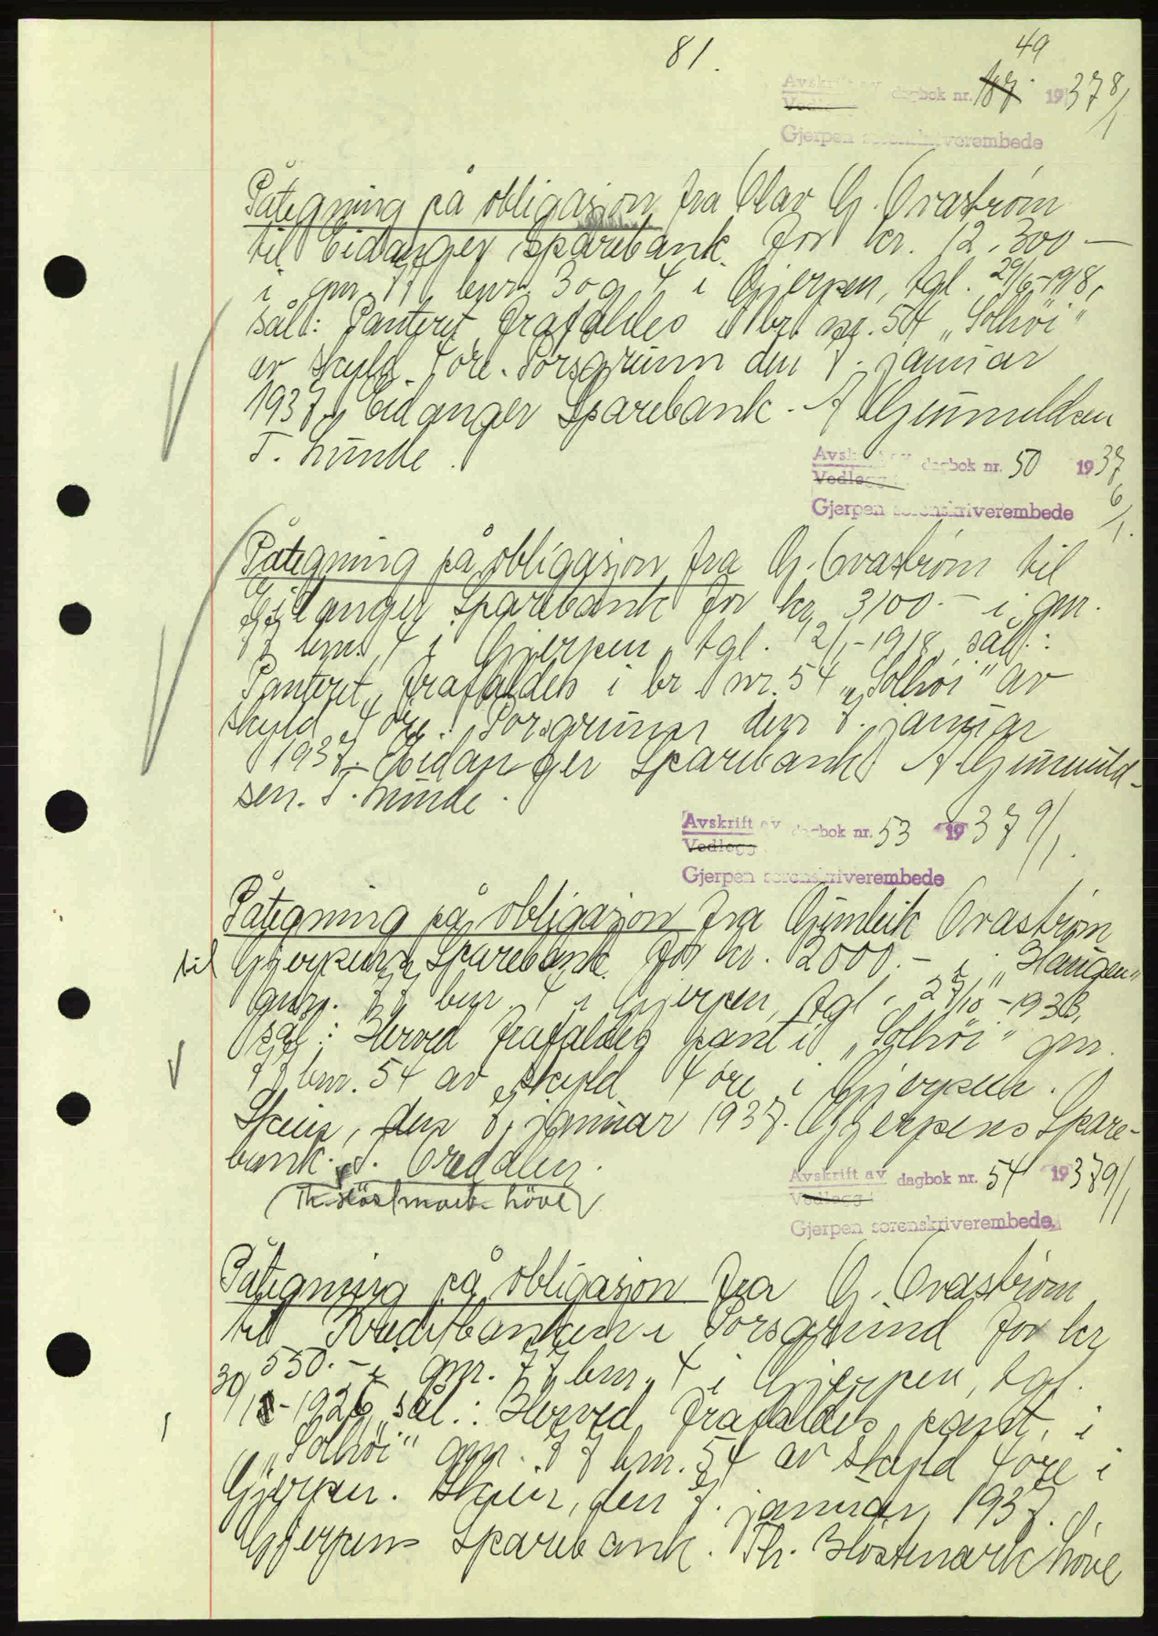 81.
49
Avskrift av dagbok nr. 187 1937 8/1
Vedlegg
Gjerpen sorenskriverembede
Påtegning på obligasjon fra Olav G. Ovaström
til Eidanger Sparebank for kr. 12.300.-
i gnr. 77 bnr. 3 og 4 i Gjerpen, tgl. 29/6-1918,
sål: Panteret frafaldes i br. nr. 54 „Solhöi"
av skyld 4 öre. Porsgrunn den 7. januar
1937. Eidanger Sparebank. A Gunnuldsen
T. Lunde.
Avskrift av dagbok nr. 50 1937
Vedlegg
6/1.
Gjerpen sorenskriverembede
Påtegning på obligasjon fra G. Ovaström til
Eidanger Sparebank for kr. 3100.- i gnr.
77 bnr. 4 i Gjerpen, tgl. 2/1-1918, sål.:
Panteret frafaldes i br. nr. 54 „Solhöi" av
skyld 4 öre. Porsgrunn den 7. januar
1937. Eidanger Sparebank A Gunnuld-
sen. T. Lunde.
Avskrift av dagbok nr. 53 1937 9/1.
Vedlegg
Gjerpen sorenskriverembede
Påtegning på obligasjon fra Gunleik Ovaström
til Gjerpens Sparebank for kr. 2000.- i „Haugen"
gnr. 77 bnr. 4 i Gjerpen, tgl. 27/10-1933,
sål: Herved frafaldes pant i „Solhöi" gnr.
77 bnr. 54 av skyld 4 öre i Gjerpen.
Skien, den 7. januar 1937. Gjerpens Spare-
bank.
Th. Höstmark höve
Avskrift av dagbok nr. 54 1937 9/1
Vedlegg
Gjerpen sorenskriverembede
Påtegning på obligasjon fra G. Ovaström
til Kreditbanken i Porsgrund for kr
550.- i gnr. 77 bnr. 4 i Gjerpen, tgl.
30/8-1926, sål.: Herved frafaldes pant i
„Solhöi" gnr. 77 bnr. 54 av skyld 4 öre i
Gjerpen. Skien, den 7. januar 1937.
Gjerpens Sparebank. Th. Höstmark höve